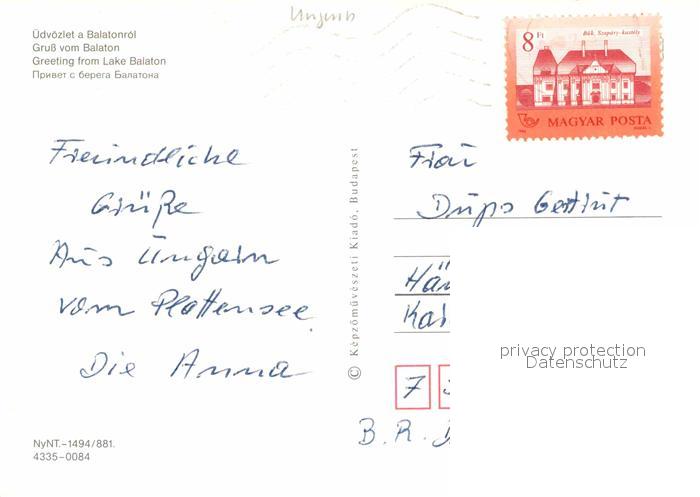 Ungarn
Üdvözlet a Balatonról
Gruß vom Balaton
Greeting from Lake Balaton
Привет с берега Балатона
8 Ft
Bük, Szapáry-kastély
MAGYAR POSTA
Freundliche
Grüße
Aus Ungarn
vom Plattensee
Die Anna
© Képzőművészeti Kiadó, Budapest
Frau
Dups
Hän
Kai
privacy protection
Datenschutz
7
B. R. D
NyNT.-1494/881.
4335-0084